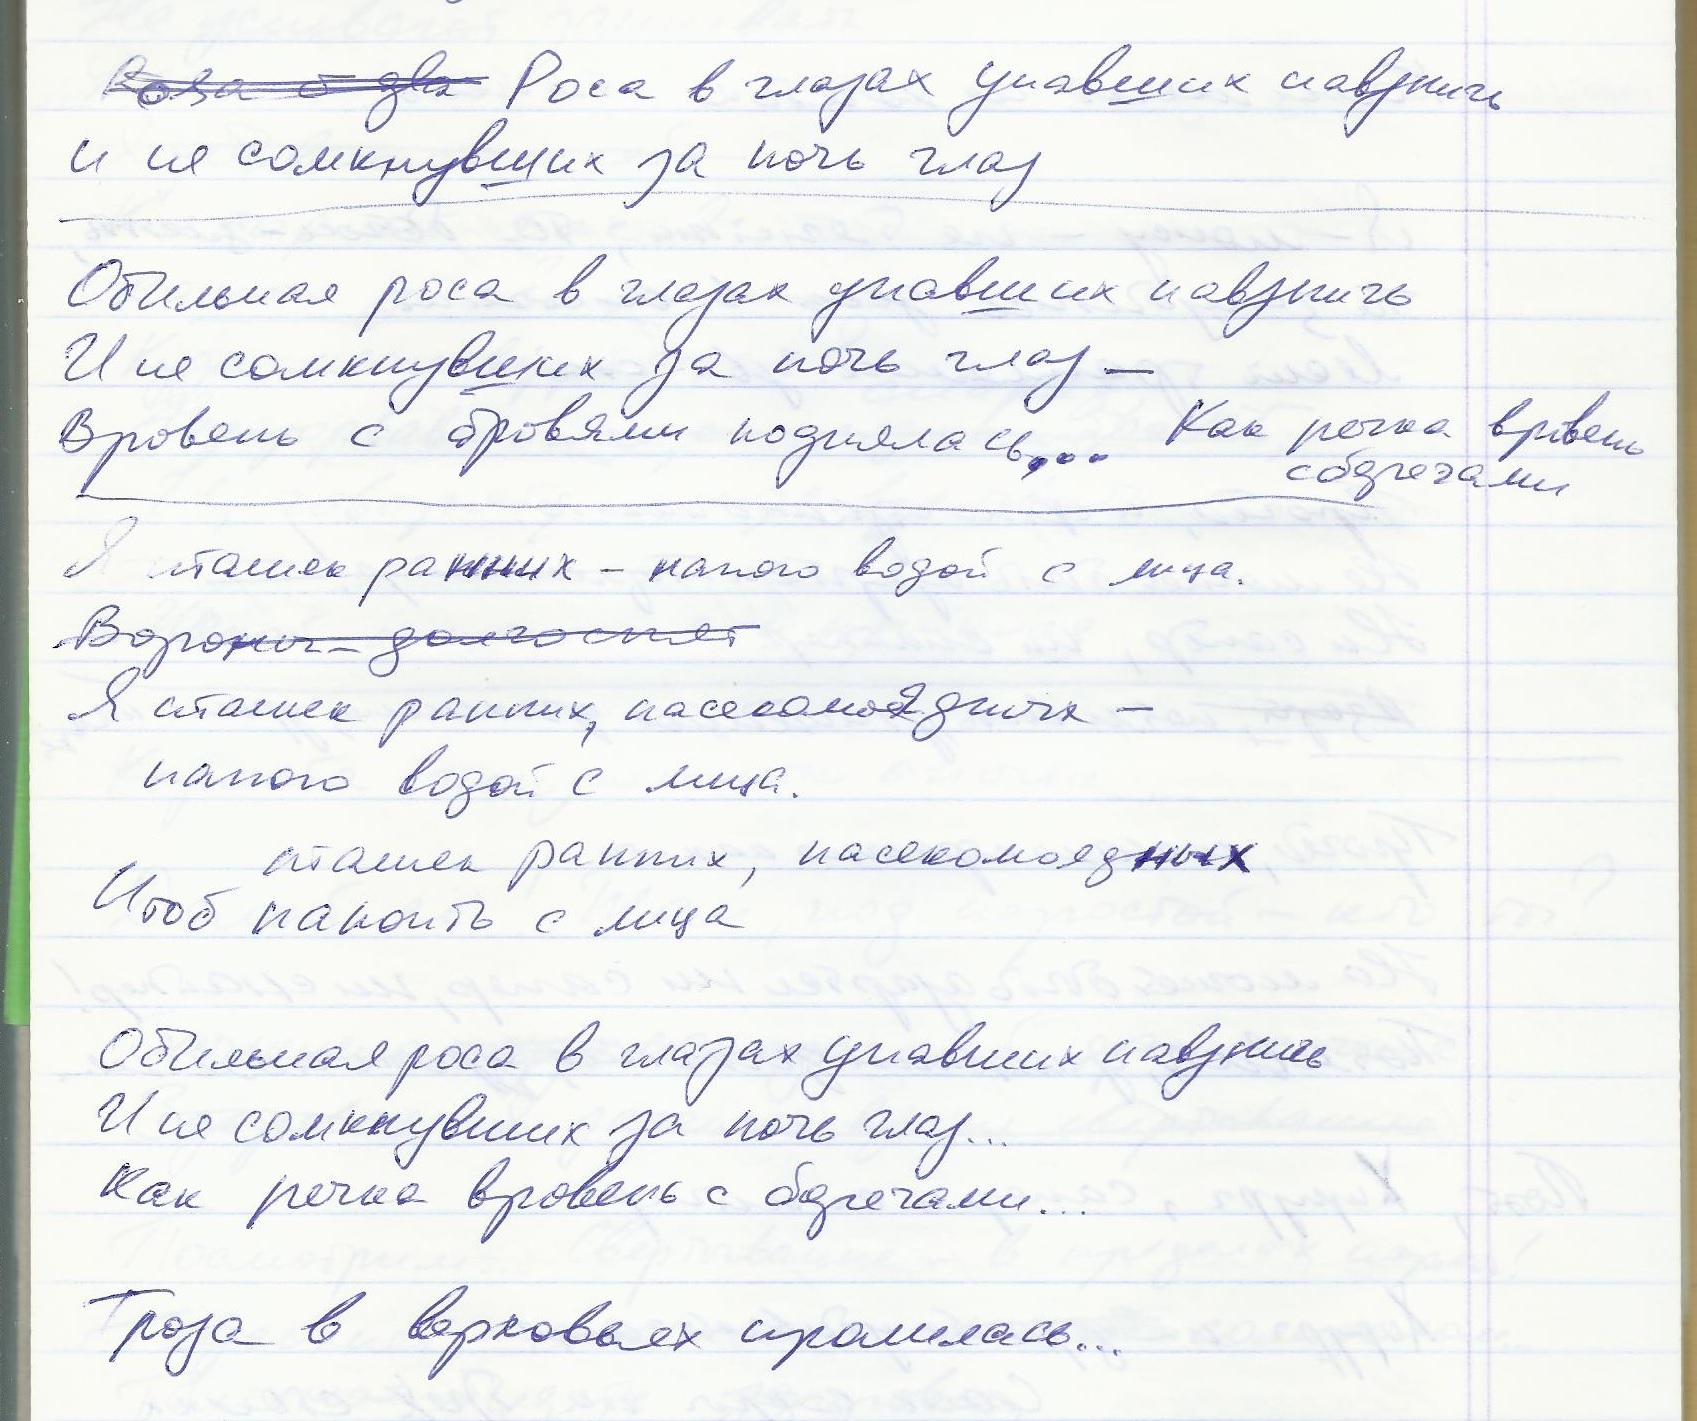 Роса в глазах упавших навзничь
и не сомкнувших за ночь глаз
Обильная роса в глазах упавших навзничь
И не сомкнувших за ночь глаз –
Вровень с бровями поднялась,... Как речка вровень
с берегами
Я пташек ранних – напою водой с лица.
Вороны – долго спят
Я пташек ранних, насекомоядных –
напою водой с лица.
пташек ранних, насекомоядных
Чтоб напоить с лица
Обильная роса в глазах упавших навзничь
И не сомкнувших за ночь глаз...
Как речка вровень с берегами...
Гроза в верховьях пролилась...